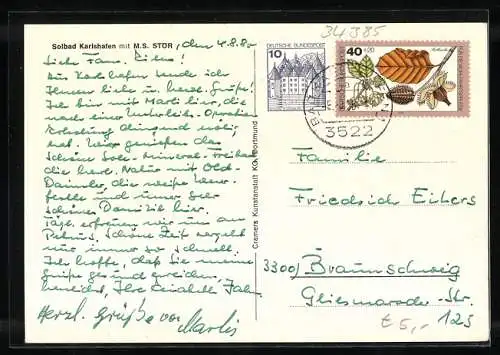 34385
Solbad Karlshafen mit M.S. STÖR, den 4.8.80
Liebe Fam. Eilers!
Aus Karlshafen sende ich
Ihnen liebe u. herzl. Grüße!
Ich bin mit Marli hier, die
nach einer Unterleibs-Operation
Erholung dringend nötig
hat. Wir genießen das
schöne Sole-Mineral-Freibad
die herrl. Natur mit Old-
die weiße Weser-
flotte und unser sehr
schönes Domizil hier.
Tägl. erfreuen wir uns am
schöne Zeit vergeht
nur immer so schnell.
Ich hoffe, daß Sie meine
Grüße gesund erreichen
Ihre
Herzl. Grüße von Marlis
Cramers Kunstanstalt KG, Dortmund
DEUTSCHE BUNDESPOST
10
40+20
3522
Familie
Friedrich Eilers
3300 Braunschweig
Gliesmaroder-Str.
125
£5,-